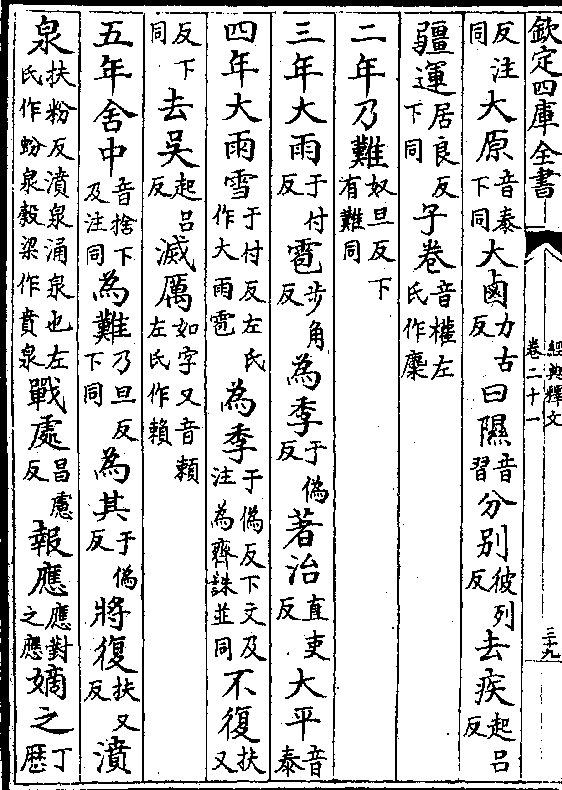 欽定四庫全書
經典釋文
卷二十一
三十九
反注同大原音泰下同大鹵力古反曰隰音習分別彼列反去疾起呂反
疆運居良反下同子卷音權左氏作麇
二年乃難奴旦反下有難同
三年大雨于付反雹步角反為季于偽反著治直吏反大平音泰
四年大雨雪于付反左氏作大雨雹為季于偽反下文及注為齊誅並同不復扶又
反下同去吴起呂反滅厲如字又音賴左氏作賴
五年舍中音捨下及注同為難乃旦反下同為其于偽反將復扶又反濆
泉扶粉反濆泉涌泉也左氏作蚡泉榖梁作賁泉戰處昌慮反報應應對之應嫡之丁歷